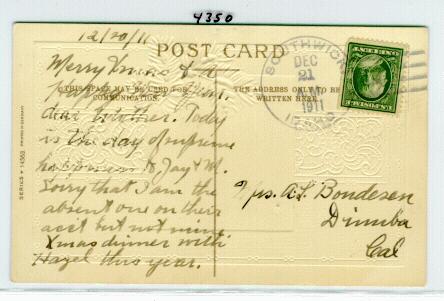 4350
12/20/11
POST CARD
Merry Xmas & A
THIS SPACE MAY BE USED FOR
COMMUNICATION.
dear brother. Today
is the day of supreme
happiness to Jay & M.
Sorry that I am the
absent one on their
acct but not mine
Xmas dinner with
Hazel this year.
SERIES 14563
THE ADDRESS ONLY TO BE
WRITTEN HERE.
SOUTHWICK
DEC
21
AM
1911
IDAHO
ONE CENT
U.S. POSTAGE
A. L. Bondesen
Dinuba
Cal